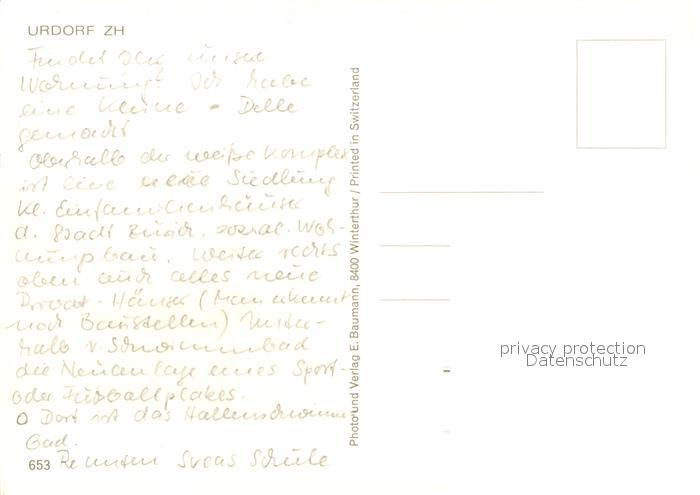 URDORF ZH
Findet Ihr unsere
Wohnung? Ich habe
eine kleine • Delle
gemacht
oberhalb der weiße Komplex
ist eine neue Siedlung
kl. Einfamilienhäuser
d. Stadt Zürich, sozial. Woh-
nungsbau. Weiter rechts
oben auch alles neue
Privat-Häuser (Man erkennt
noch Baustellen) Unter-
halb v. Schwimmbad
die Neuanlage eines Sport-
oder Fußballplatzes.
O Dort ist das Hallenschwimm
Bad.
653 unten Sveas Schule
Photo und Verlag E. Baumann, 8400 Winterthur / Printed in Switzerland
privacy protection
Datenschutz